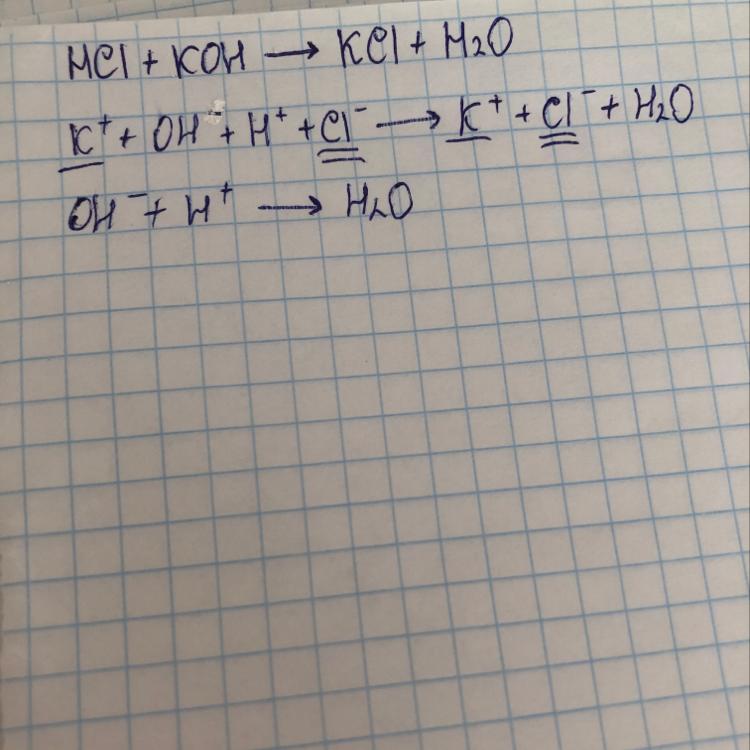 HCl + KOH → KCl + H₂O
K⁺ + OH⁻ + H⁺ + Cl⁻ → K⁺ + Cl⁻ + H₂O
OH⁻ + H⁺ → H₂O